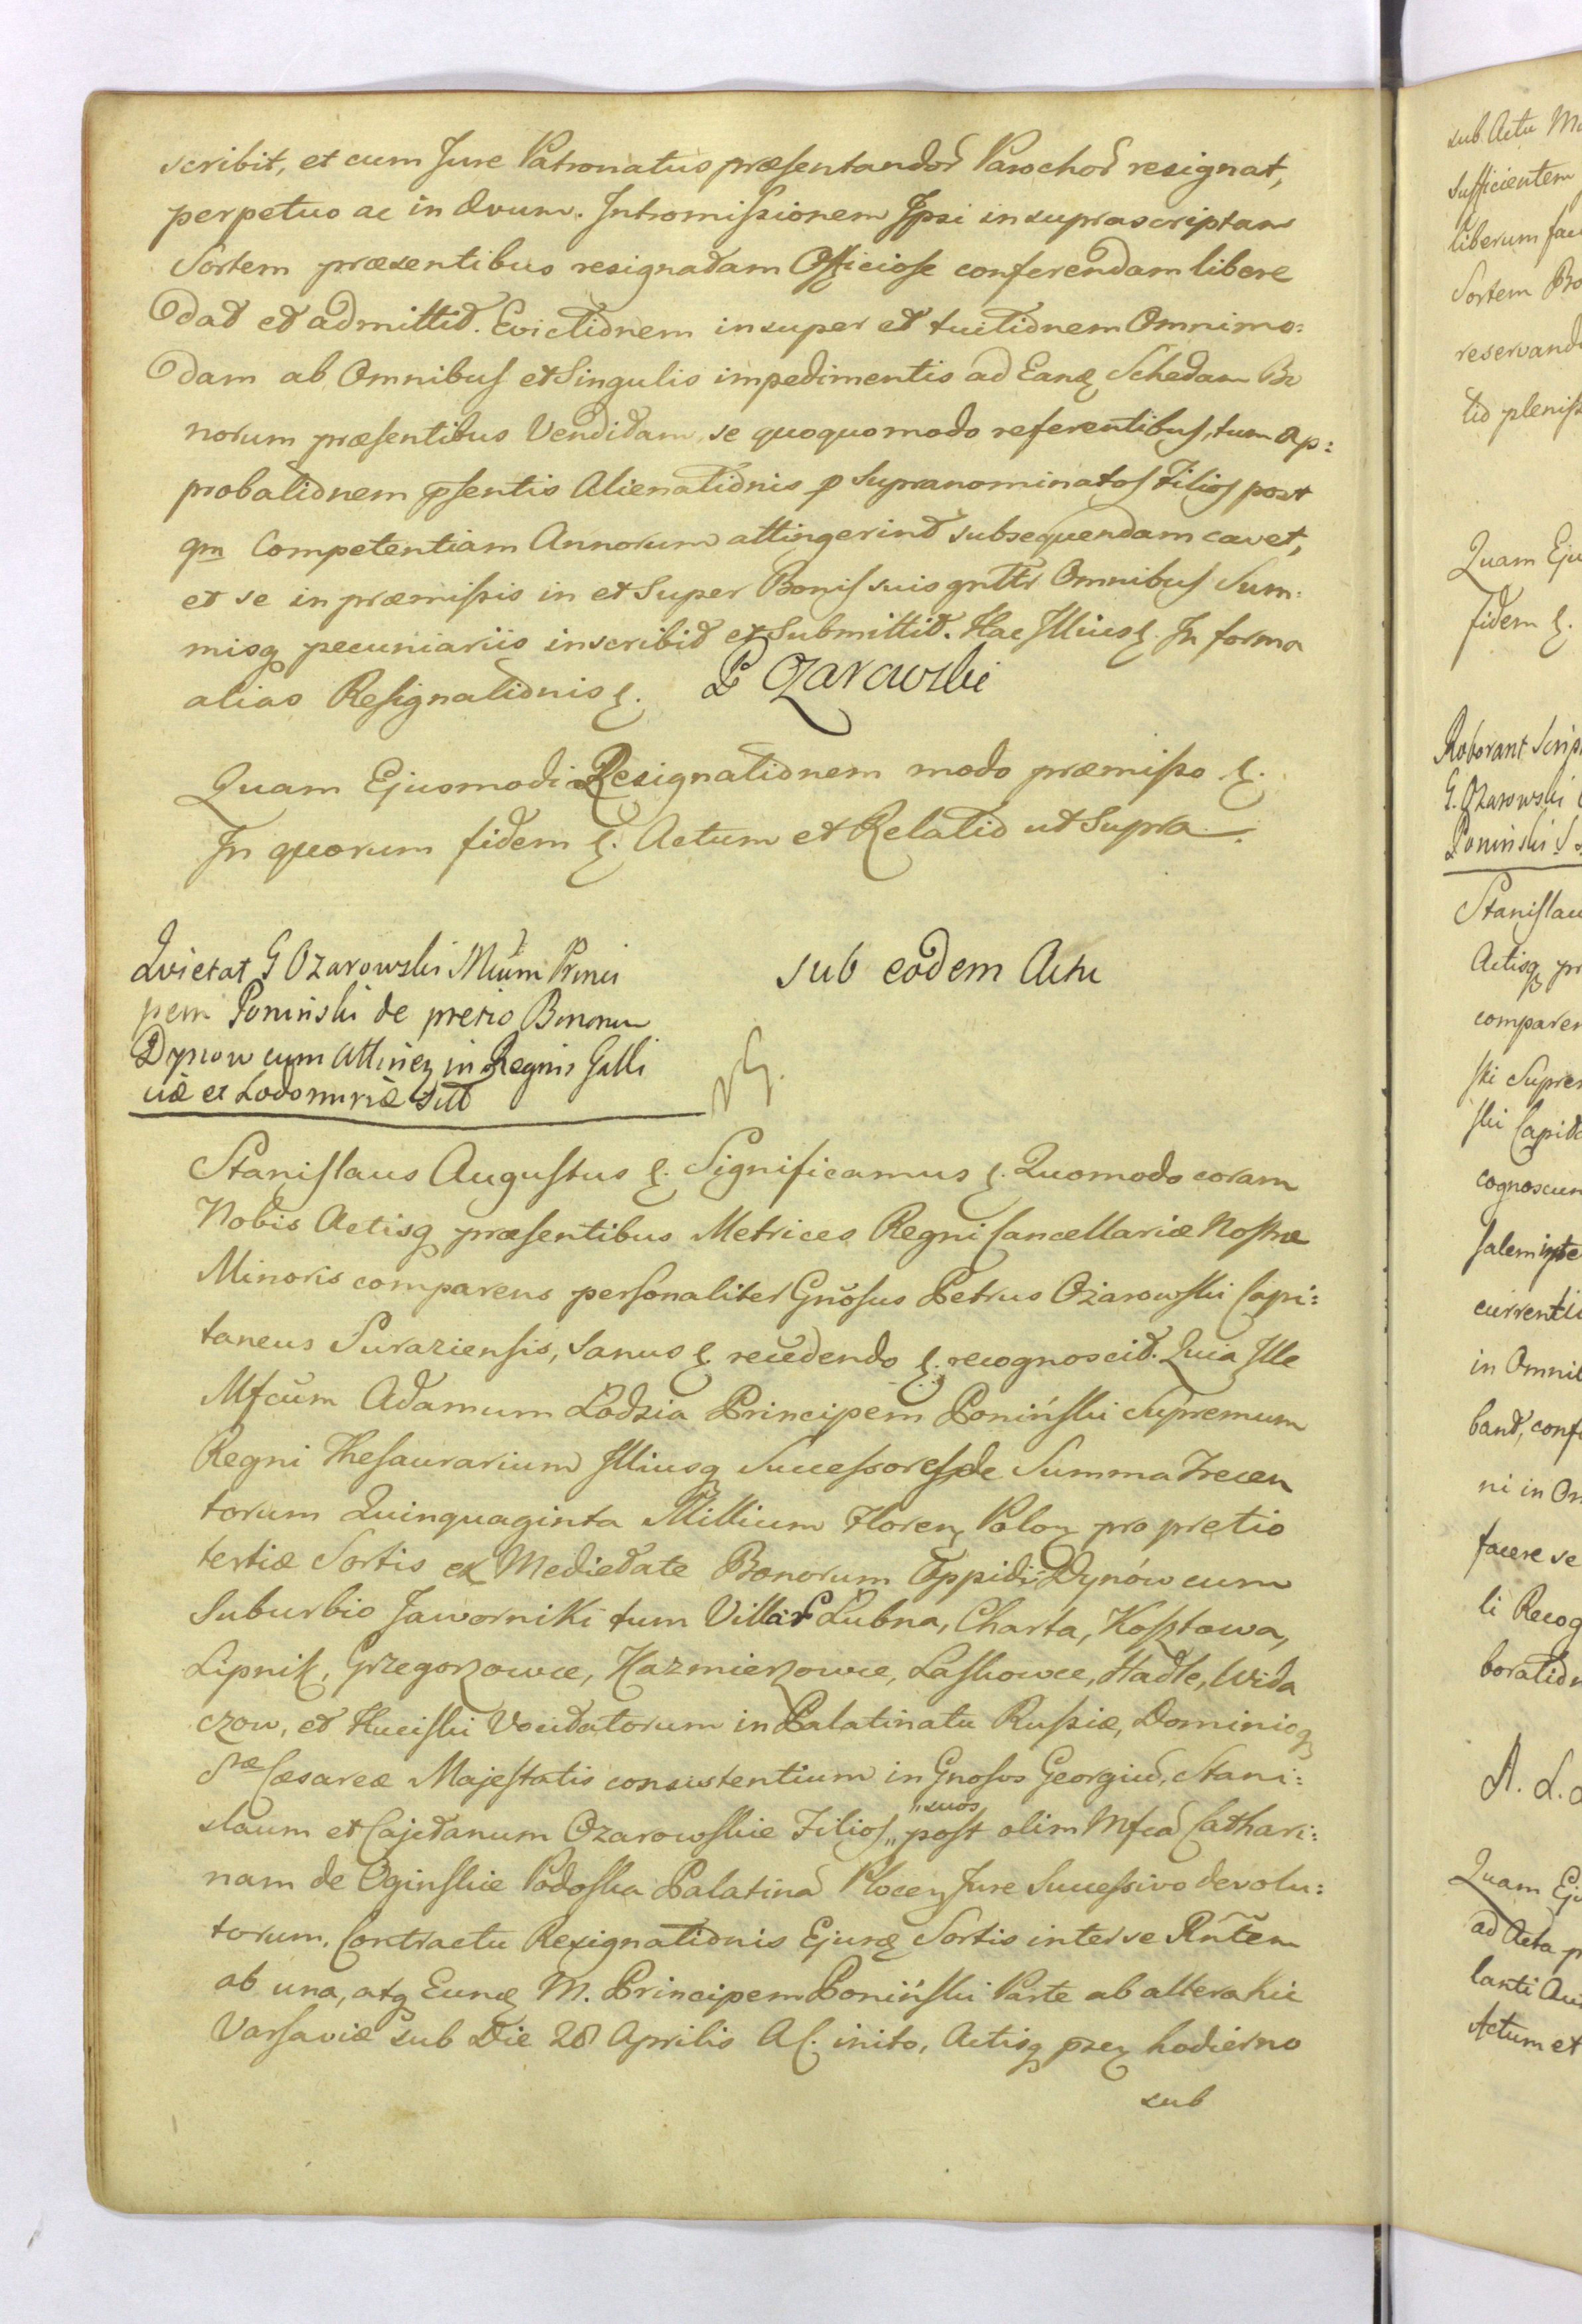 scribit, et cum Jure Patronatus præsentandor Parochor resignat,
perpetuo ac in ævum. Intromissionem Ipsi in suprascriptam
Sortem præsentibus resignatam Officiose conferendam libere
dat et admittit. Evictionem insuper et tuitionem Omnimo:
dam ab Omnibus et Singulis impedimentis ad Eandę Schedam Bo
norum præsentibus Venditam se quoquomodo referentibus, tum Ap:
probationem psentis Alienationis p Supranominatos Filios post
qm Competentiam Annorum attingerint subsequendam cavet,
et se in præmissis in et Super Bonis suis gnttr Omnibus Sum:
misq pecuniariis inscribit et Submittit. Hac Illius &. In forma
alias Resignationis &. P Ożarowski
Quam Ejusmodi Resignationem modo præmisso &.
In quorum fidem &. Actum et Relatio ut Supra.
Qvietat G Ozarowski Mcum Princi
pem Poniński de pretio Bonorum
Dynow cum Attinen in Regnis Galli
ciæ et Lodomeriæ Sitt
sub eodem Actu
Stanislaus Augustus &. Significamus &. Quomodo coram
Nobis Actisq præsentibus Metrices Regni Cancellariæ Nostræ
Minoris comparens personaliter Gnosus Petrus Ożarowski Capi:
taneus Suraziensis, sanus &. recedendo &. recognoscit. Quia Ille
Mfcum Adamum Łodzia Principem Poniński Supremum
Regni Thesaurarium Illiusq Successores de Summa Trecen
torum Quinquaginta Millium Floren Polon pro pretio
tertiæ Sortis ex Medietate Bonorum Oppidi Dynów cum
Suburbio Jaworniki tum Villar Łubna, Charta, Kosztowa,
Lipnik, Grzegorzowce, Kazmierzowce, Laskowce, Hadle, Wida
czow, et Huciski Vocitatorum in Palatinatu Russiæ, Dominioq
Sræ Cæsareæ Majestatis consistentium in Gnosos Georgiū, Stani:
slaum et Cajetanum Ozarowskie Filios „suos„ post olim Mfcā Cathari:
nam de Oginskie Podoska Palatinā Plocen Jure Successivo devolu:
torum. Contractu Resignationis Ejusdę Sortis inter se Rñtem
ab una, atq Eundę M. Principem Poniński Parte ab altera hic
Varsaviæ sub Die 28 Aprilis A C. inito, Actisq præn hodierno
sub